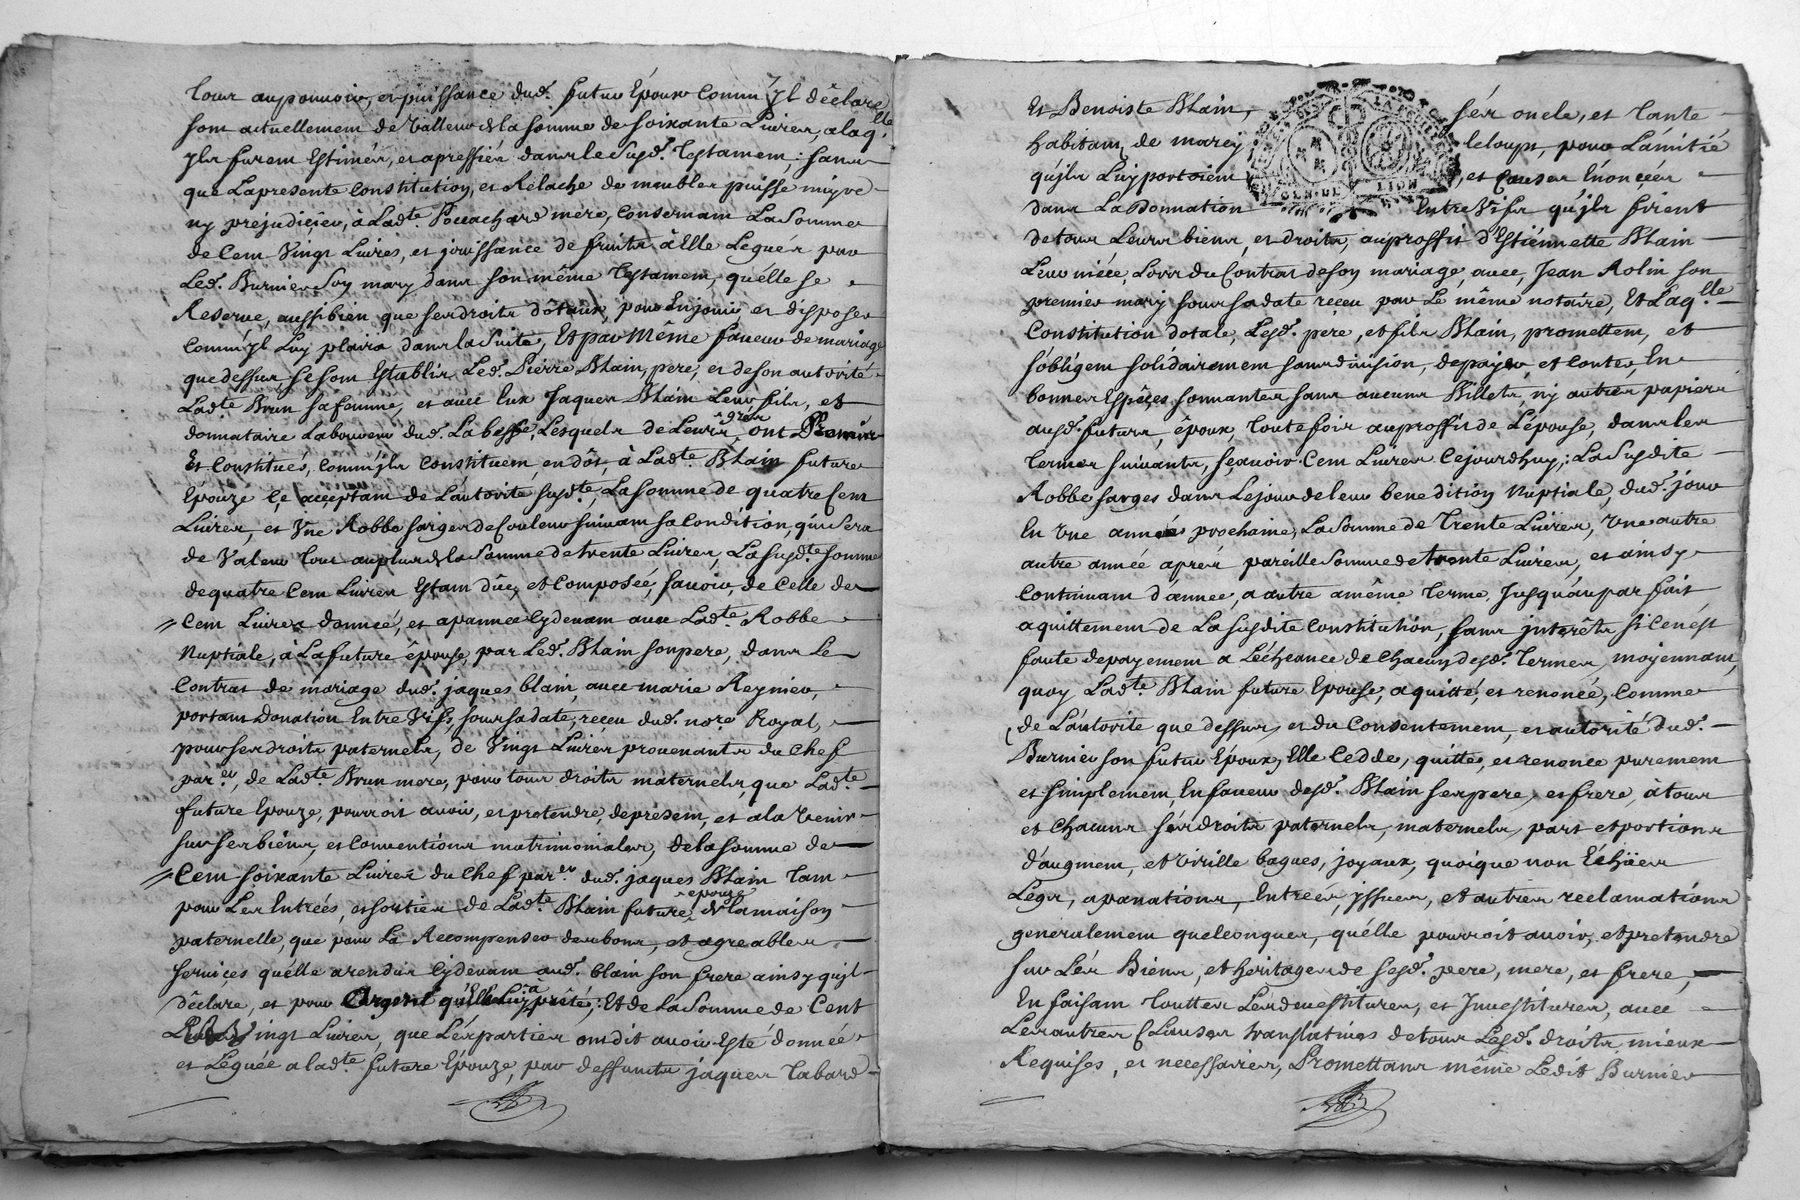 tous au pouuoir, et puissance dud.t futur Epoux Comm' jl déclare
sont actuellement de Valleur de la somme de soixante Liures, a laq.lle
jls furent Estimés, et apressiés dans le susd.t Testament; sans
que La presente Constitution, et Relache de meubles puisse nuyre
ny prejudicier, à Lad.te Pouachard mere, Consernant La Somme
de Cent Vingt Liures, et jouissance de fruits à Elle Legués par
Led.t Burnier Son mary dans son même Testament, qu'elle se
Reserue, aussi bien que ses droits dôtaux, pour En jouir et disposer
Comm'jl Luy plaira dans la suite, Et par Même faueur de mariage
que dessus, se sont Establis Led.t Pierre Blain, pere, et de son autorité
Lad.te Brun sa femme, et auec Eux Jaques Blain Leur fils, et
donnataire Laboureur dud.t La besse, Lesquels de Leurs grés ont Promis
Et Constitués, comm'jls Constituent en dôt, à Lad.te Blain future
Epouze çe acçeptant de L'autorité susd.te, La somme de quatre Cent
Liures, et Vne Robbe sarges de Couleur suiuant sa Condition, qui sera
de Valeur tout au plus de la Somme de trente Liures, La susd.te somme
de quatre Cent Liures Estant dûe, et Composée, sauoir, de Celle de
Cent Liures donnée, et apannée Cy deuant auec Lad.te Robbe
Nuptiale, à La future êpouse, par Led.t Blain son pere, dans Le
Contrat de mariage dud.t jaques blain, auec marie Reynier,
portant Donation Entre Vifs, sous sa daté, reçeu dud.t no.re Royal,
pour ses droits paternels, de Vingt Liures prouenants du Chef
par.er, de Lad.te Brun mere, pour tous droits maternels, que Lad.te
future Epouze, pourroit auoir, et pretendre, de présent, et a la Venir
sur ses biéns, et Conuentions matrimoniales, de la somme de
Cent soixante Liures du Chef par.er dud.t jaques Blain tant
pour Les Entrées, et sorties de Lad.te Blain future epouze de la maison
paternelle, que pour La Recompenser des bons, et agreables
seruiçes qu'elle a rendus Cy deuant aud.t blain son frere ainsy qu'jl
déclare, et pour Argent qu'Elle Luy a prêté; Et de La Somme de Cent
Vingt Liures, que Les parties ont dit auoir Esté donnée
et Leguée a lad.te future Epouze, par deffunts jaques tabard
Et Benoiste Blain, sés oncle, et tante
habitant de marcy le loup, pour L'amitié
qu'jls Luy portoient, et Causes Enonçées
dans La Donnation Entre Vifs qu'jls firent
de tous Leurs biens, et droits, au proffit d'Estiénnette Blain
Leur niéce, Lors du Contrat de son mariage, auec, Jean Rolin son
premier mary sous sa date reçeu par Le même notaire, Et Laq.lle
Constitution dotale, Lesd.ts pere, et fils Blain, promettent, et
s'obligent solidairement sans diuision, de payer, et Conter, En
bonnes Espéçes sonnantes sans aucuns Billets, ny autres papiers
ausd.ts futurs, époux, toutefois au proffit de L'épouse, dans les
termes suiuants, sçauoir Cent Liures Cejourd'huy; La susdite
Robbe sarges dans Le jour de leur benediction Nuptiale, dud.t jour
En Vne année prochaine, La Somme de Trente Liures, Vne autre
autre année aprés pareille Somme de trente Liures, et ainsy
Continuant d'année, a autre a même terme, jusqu'au parfait
aquittement de La susdite Constitution, sans jnterêts si Ce n'est
faute de payement a L'écheance de Chacun desd.ts termes, moyennant
quoy Lad.te Blain future Epouse, a quitté, et renonçé, Comme
de L'autorité que dessus, et du Consentement, et autorité dud.t
Burnier son futur Epoux, Elle Cedde, quitte, et renonce purement
et simplement, En faueur desd.ts Blain ses pere, et frere, à tous
et Chacuns sés droits paternels, maternels, part et portions
d'augment, et Virille bagues, joyaux, quoique non Echües
Legs, apanations, Entrées, jssues, et autres reclamations
generalement quelconques, qu'élle pourroit auoir, et pretendre
sur Lés Biens, et héritages de sesd.ts pere, mere, et frere,
En faisant touttes Les deuestitures, et Jnuestitures, auec
Les autres Clauses translatiues de tous Lesd.ts droits mieux
Requises, et necessaires, Promettans même Ledit Burnier